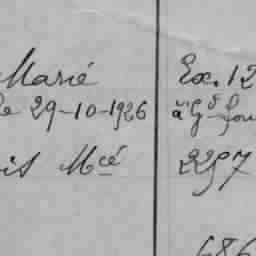 Marié
le 29-10-1926
Mcé
Ex. 12
à Gd
2297
686